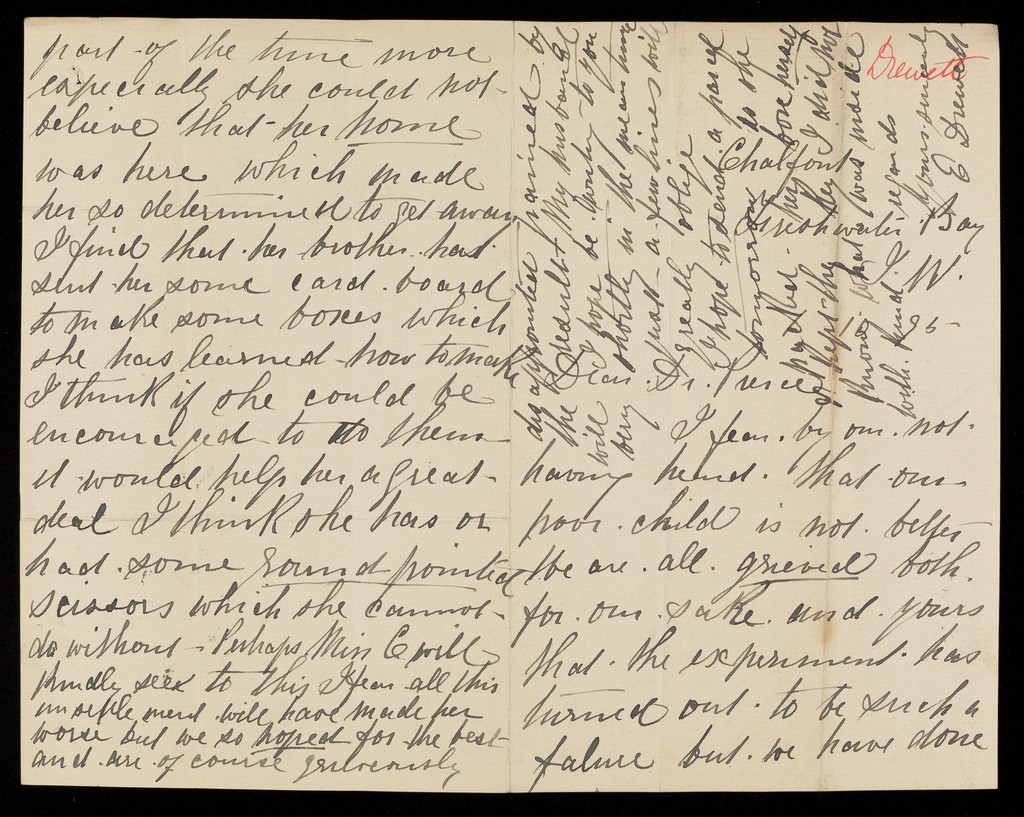 Drewett
Chalfont
Freshwater Bay
I. W.
95
Dear Dr. Pierce
I fear by our not
having heard that our
poor child is not better
We are all grieved both
for our sake and yours
that the experiment has
turned out to be such a
failure but we have done
part of the time more
especially she could not
believe that her home
was here which made
her so determined to get away
I find that her brother has
sent her some card board
to make some boxes which
she has learned how to make
I think if she could be
encouraged to do them
it would help her a great
deal I think she has or
had some round pointed
scissors which she cannot
do without - Perhaps Miss E will
kindly see to this I fear all this
unsettlement will have made her
worse but we so hoped for the best
and are of course grievously
disappointed & pained by
the result My husband
will I hope be writing to you
very shortly in the meantime
just a few lines will
greatly oblige
I hope to send a parcel
tomorrow as she
packed her box herself
I did not
know what was inside
with kind regards
Yours sincerely
E Drewett